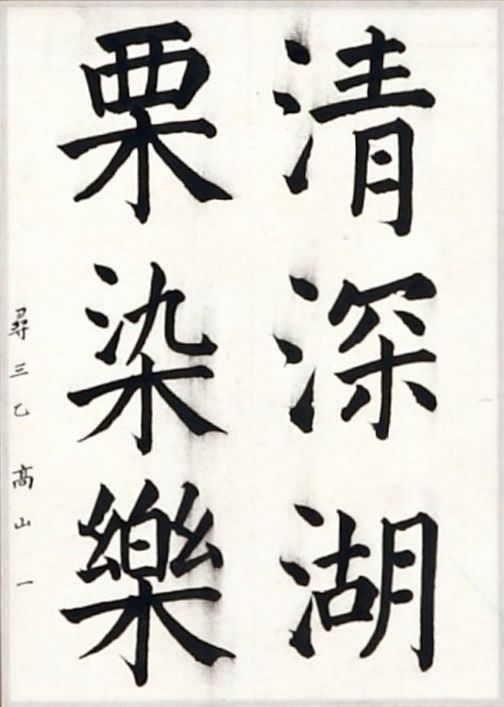 清深湖
栗染樂
尋三乙 高山一